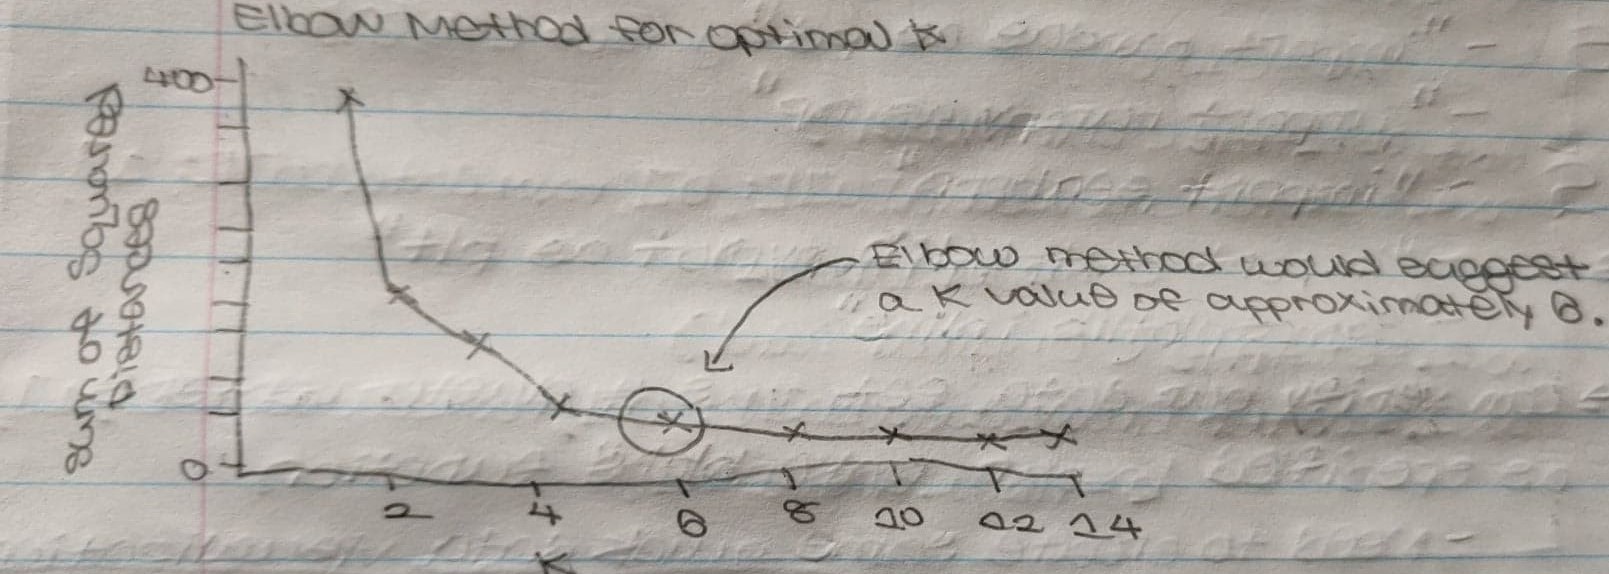 Elbow Method for optimal k
400
Sum of Squared
Distances
Elbow method would suggest
a K value of approximately 6.
0
2 4 6 8 10 12 14
K